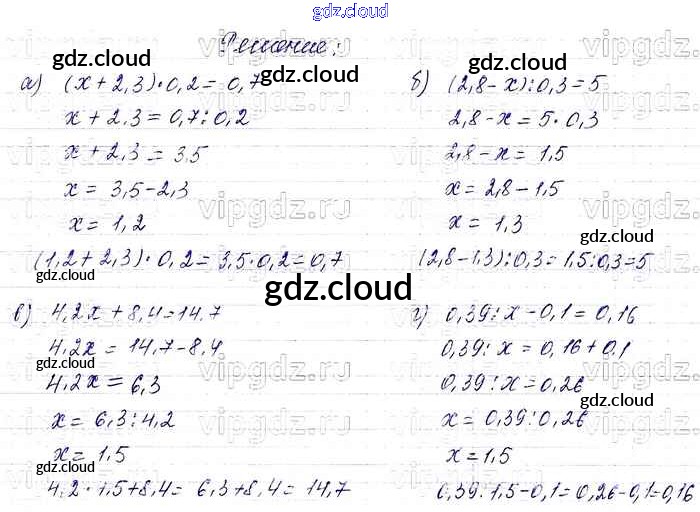 gdz.cloud
Решение:
а) (x+2,3)·0,2=0,7
x+2,3=0,7:0,2
x+2,3=3,5
x=3,5-2,3
x=1,2
(1,2+2,3)·0,2=3,5·0,2=0,7
б) (2,8-x):0,3=5
2,8-x=5·0,3
2,8-x=1,5
x=2,8-1,5
x=1,3
(2,8-1,3):0,3=1,5:0,3=5
в) 4,2x+8,4=14,7
4,2x=14,7-8,4
4,2x=6,3
x=6,3:4,2
x=1,5
4,2·1,5+8,4=6,3+8,4=14,7
г) 0,39:x-0,1=0,16
0,39:x=0,16+0,1
0,39:x=0,26
x=0,39:0,26
x=1,5
0,39:1,5-0,1=0,26-0,1=0,16
gdz.cloud
gdz.cloud
gdz.cloud
gdz.cloud
gdz.cloud
gdz.cloud
gdz.cloud
gdz.cloud
gdz.cloud
gdz.cloud
vipgdz.ru
vipgdz.ru
vipgdz.ru
vipgdz.ru
vipgdz.ru
vipgdz.ru